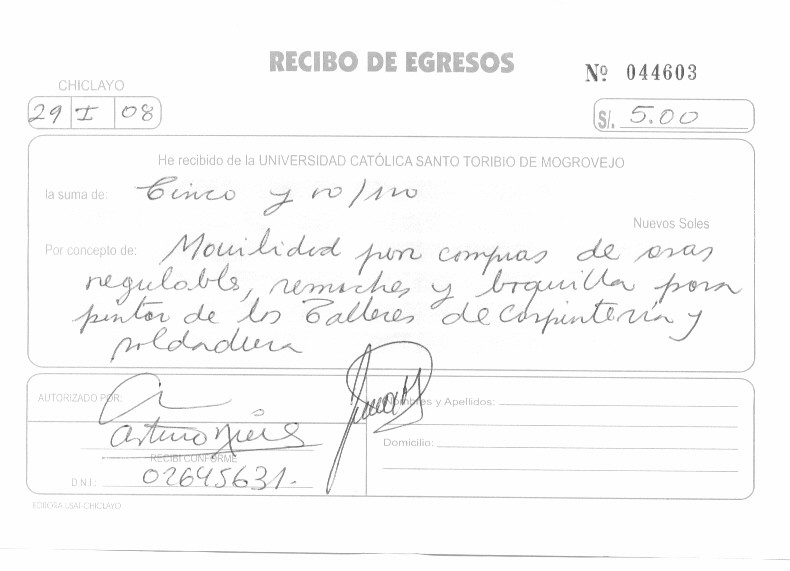 RECIBO DE EGRESOS
Nº 044603
CHICLAYO
29 I 08
S/. 5.00
He recibido de la UNIVERSIDAD CATÓLICA SANTO TORIBIO DE MOGROVEJO
la suma de: Cinco y 00/100
Nuevos Soles
Por concepto de: Movilidad por compras de asas
regulable, remaches y boquilla para
pintar de los Talleres de Carpintería y
soldadura
AUTORIZADO POR:
Nombres y Apellidos:
Arturo
Domicilio:
RECIBI CONFORME
D.N.I.: 02645631.
EDITORA LSAI CHICLAYO